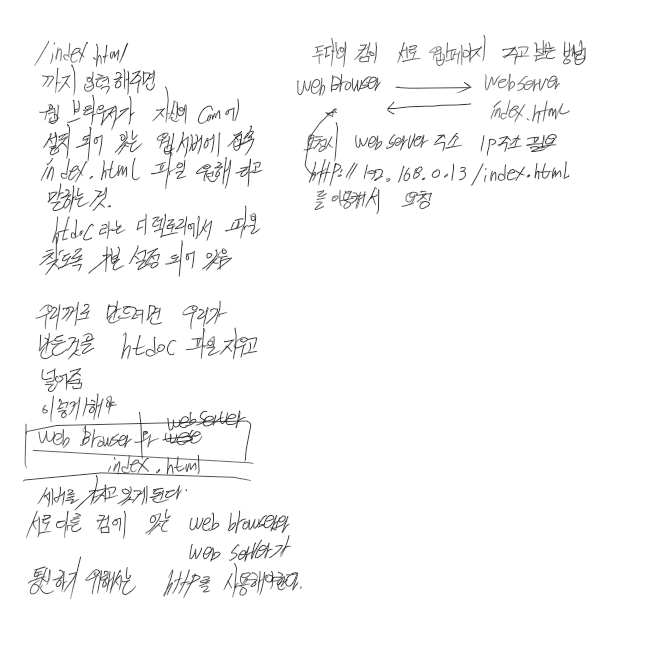 /index.html
까지 입력해주면
웹 브라우저가 자신의 Com에
설치 되어 있는 웹서버에 접속
index.html 파일 원해 라고
말하는 것.
htdoc 라는 디렉토리에서 파일
찾도록 기본 설정 되어 있음
우리꺼로 만드려면 우리가
만든것을 htdoc 파일 지우고
넣어줌
이렇게 해야
web server
web browser 와
index.html
서버를 갖고 있게 된다.
서로 다른 컴에 있는 web browser와
web server가
통신하기 위해서는 http를 사용해야한다.
두대의 컴이 서로 웹페이지 주고 받는 방법
web browser web server
index.html
요청시 web server 주소 IP주소 필요
http://192.168.0.13/index.html
를 이용해서 요청